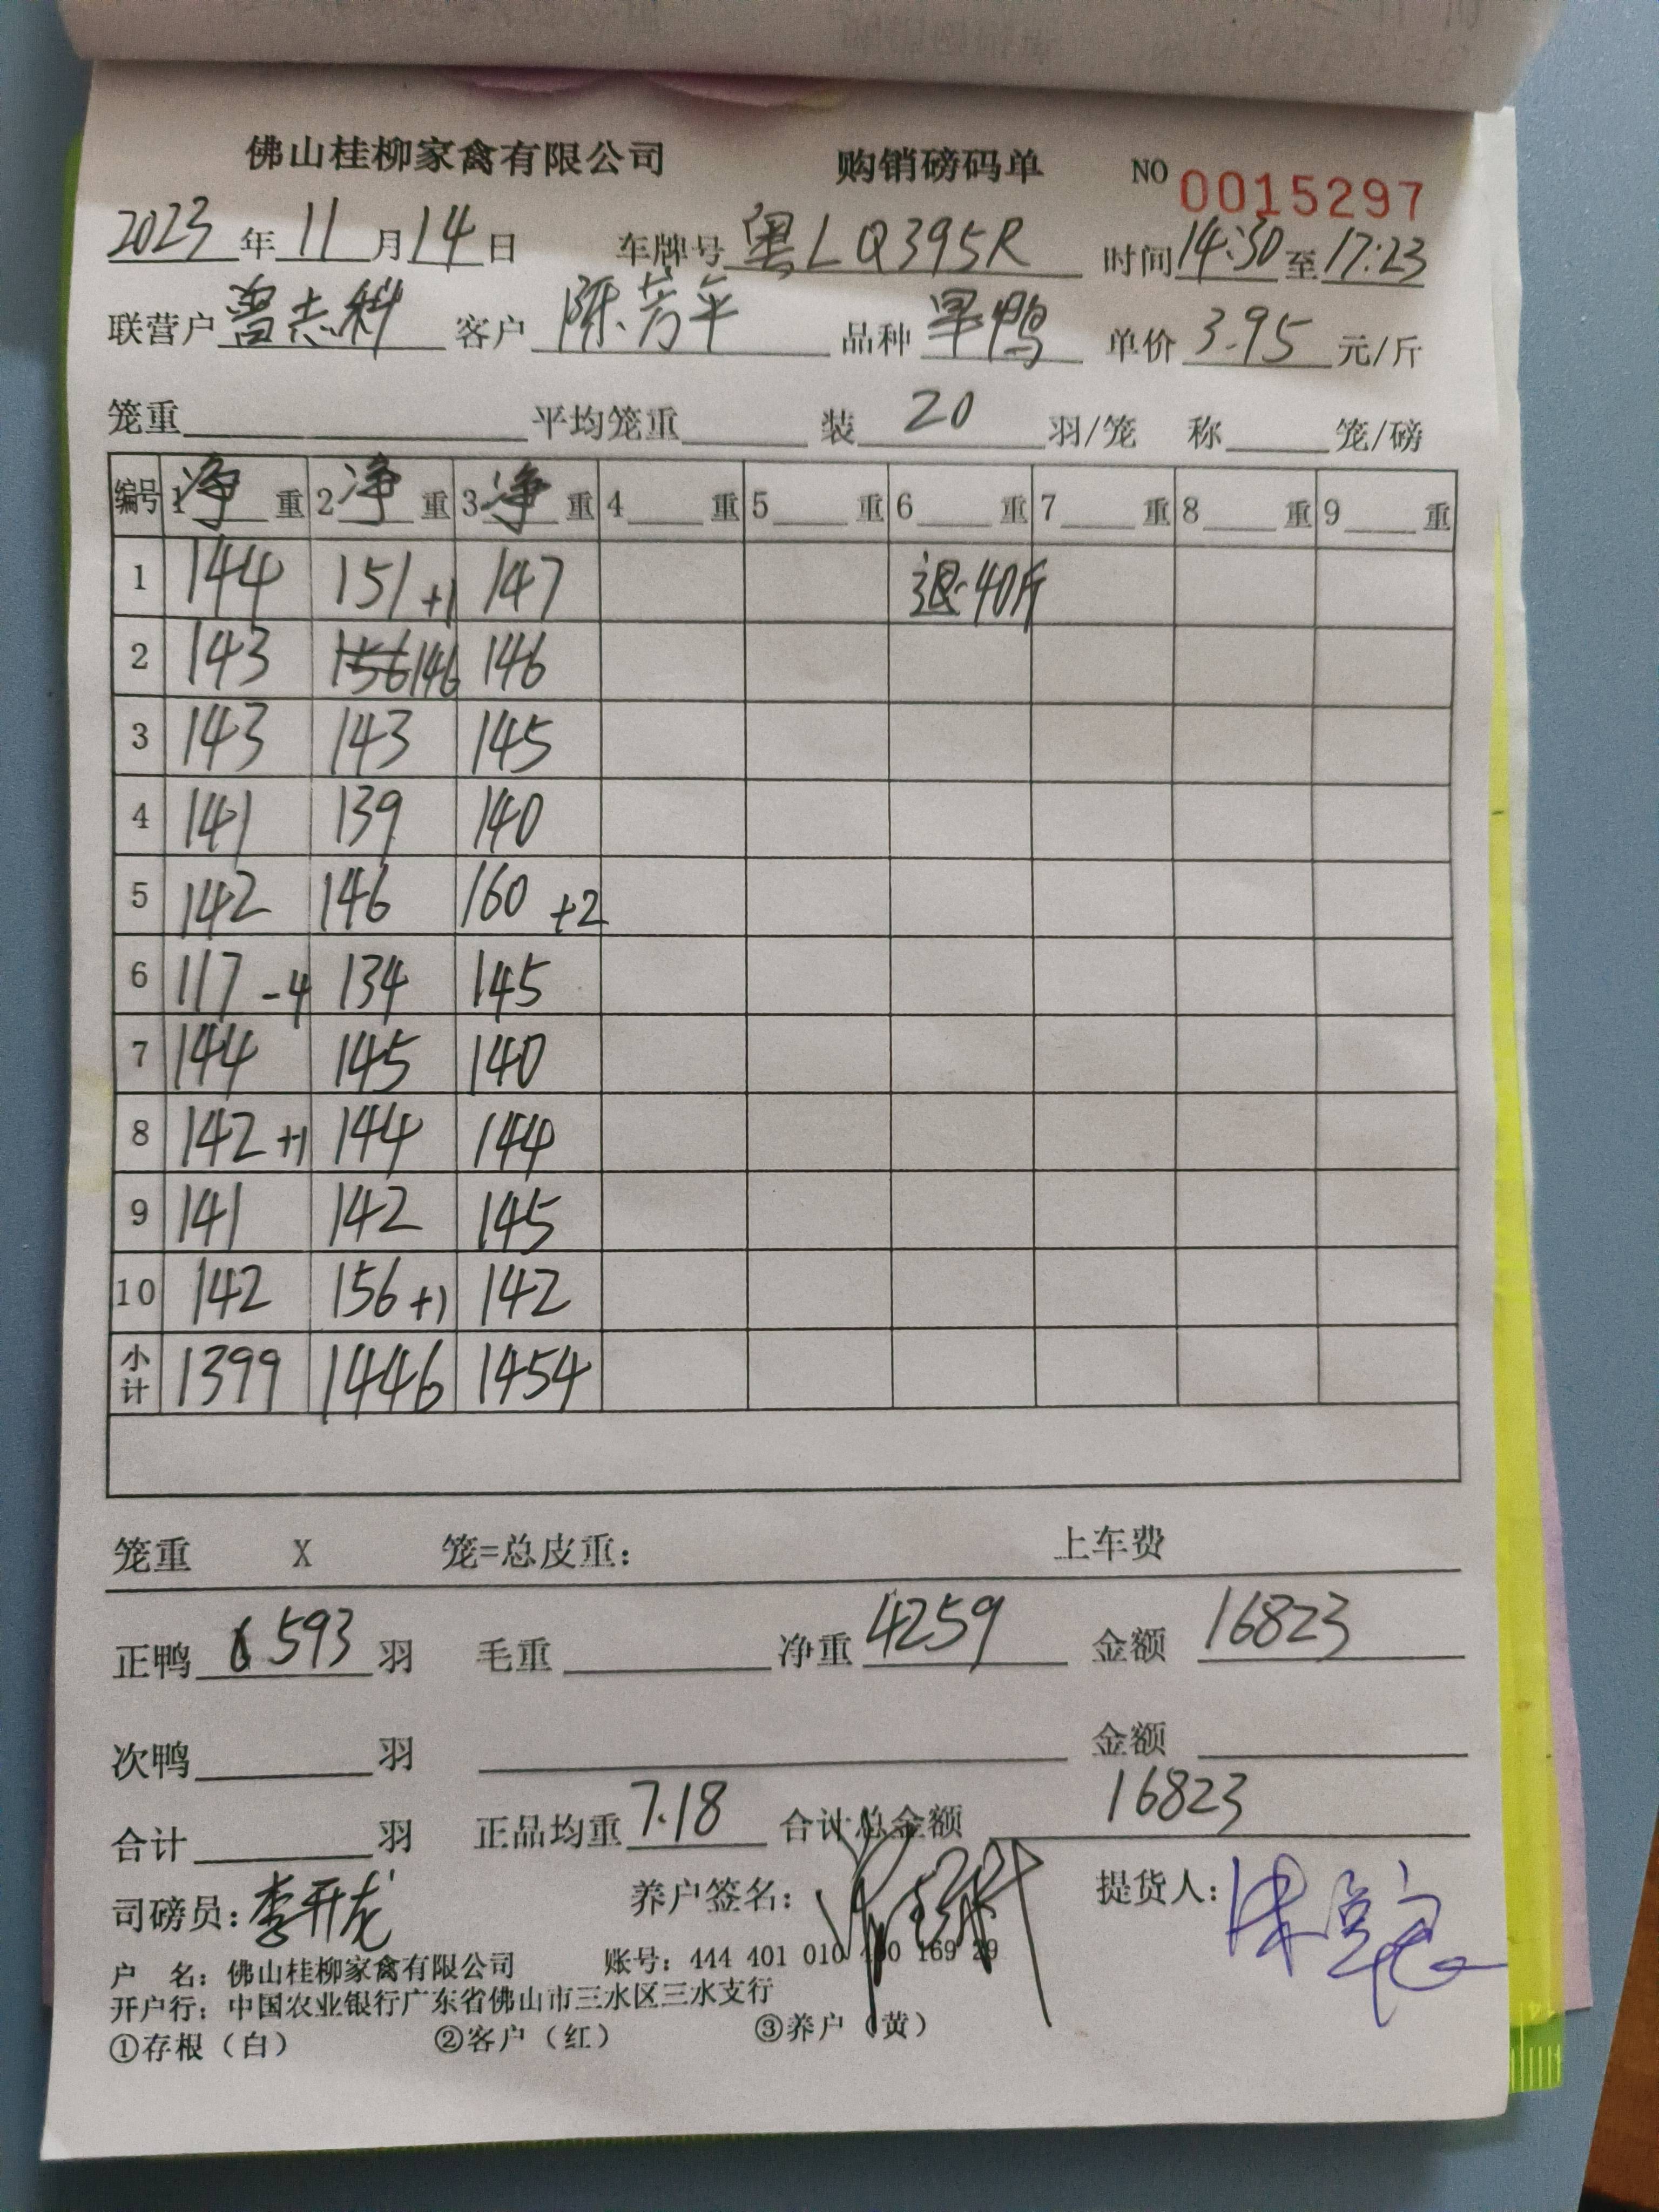 佛山桂柳家禽有限公司 购销磅码单 NO 0015297
2023年11月14日 车牌号 粤LQ395R 时间14:30至17:23
联营户 曾志科 客户 陈芳平 品种 旱鸭 单价 3.95 元/斤
笼重 平均笼重 装 20 羽/笼 称 笼/磅
编号 1净重 2净重 3净重 4 重 5 重 6 重 7 重 8 重 9 重
1 144 151+1 147 退40斤
2 143 156 146 146
3 143 143 145
4 141 139 140
5 142 146 160 +2
6 117 -4 134 145
7 144 145 140
8 142 +1 144 144
9 141 142 145
10 142 156+1 142
小计 1399 1446 1454
笼重 X 笼=总皮重: 上车费
正鸭 593 羽 毛重 净重 4259 金额 16823
次鸭 羽 金额
合计 羽 正品均重 7.18 合计总金额 16823
司磅员:李开龙 养户签名: 提货人:
户 名:佛山桂柳家禽有限公司 账号:444 401 010 400 169 29
开户行:中国农业银行广东省佛山市三水区三水支行
①存根(白) ②客户(红) ③养户(黄)